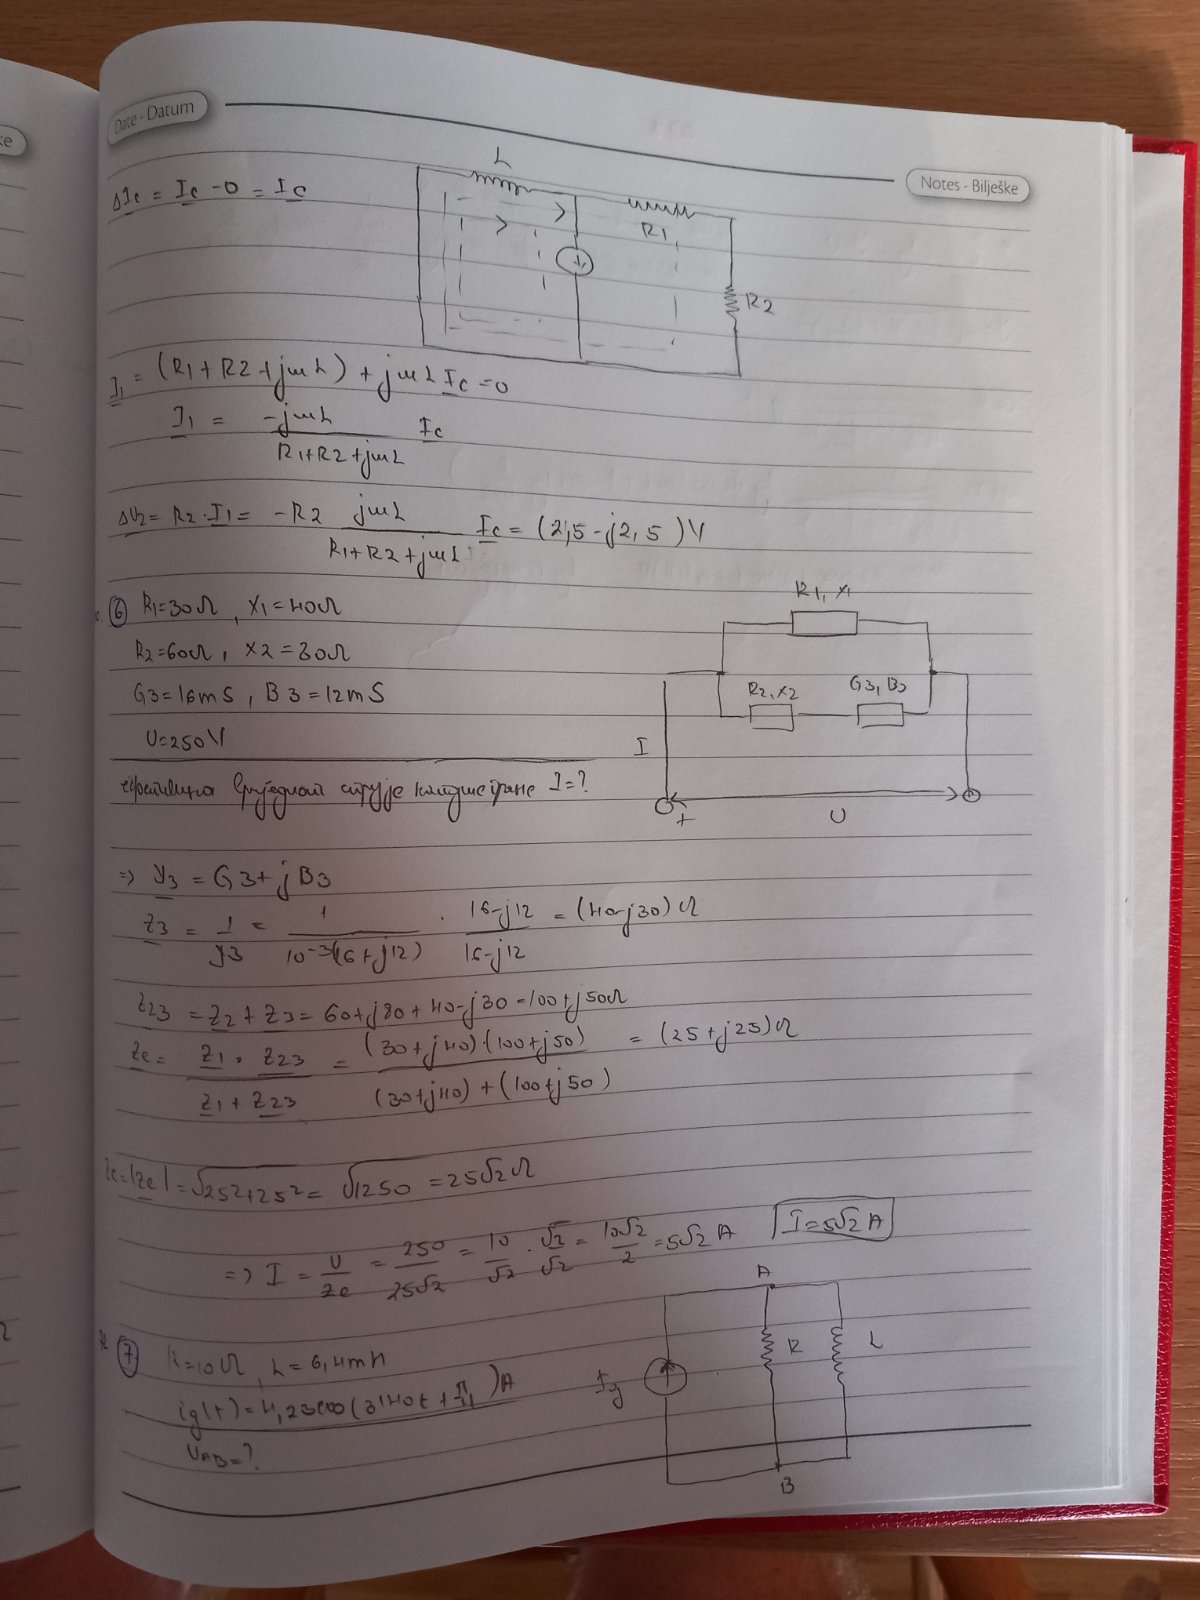 Date - Datum
Notes - Bilješke
ΔI̲c = I̲c - 0 = I̲c
L
R1
R2
I̲1 = (R1 + R2 + jωL) + jωL I̲c = 0
I̲1 = -jωL / (R1+R2+jωL) I̲c
ΔU2 = R2 · I̲1 = -R2 jωL / (R1+R2+jωL) I̲c = (2,5 - j2,5) V
6 R1=30Ω, X1=40Ω
R2=60Ω, X2=80Ω
G3=16mS, B3=12mS
U=250V
I=?
R1, X1
R2, X2
G3, B3
I
+
U
=> y̲3 = G3 + jB3
z̲3 = 1/y̲3 = 1 / (10⁻³(16+j12)) · (16-j12) / (16-j12) = (40-j30) Ω
z̲23 = z̲2 + z̲3 = 60+j80+40-j30 = 100+j50Ω
z̲e = z̲1 · z̲23 / (z̲1 + z̲23) = (30+j40)·(100+j50) / ((30+j40)+(100+j50)) = (25+j25) Ω
ze = |z̲e| = √25²+25² = √1250 = 25√2 Ω
=> I = U/ze = 250/25√2 = 10/√2 · √2/√2 = 10√2/2 = 5√2 A I=5√2 A
7 R=10Ω, L=6,4mH
UAB=?
A
R
L
Ig
B